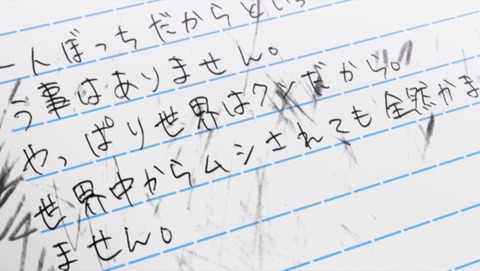 一人ぼっちだからとい
う事はありません。
やっぱり世界はクソだから。
世界中からムシされても全然かま
ません。